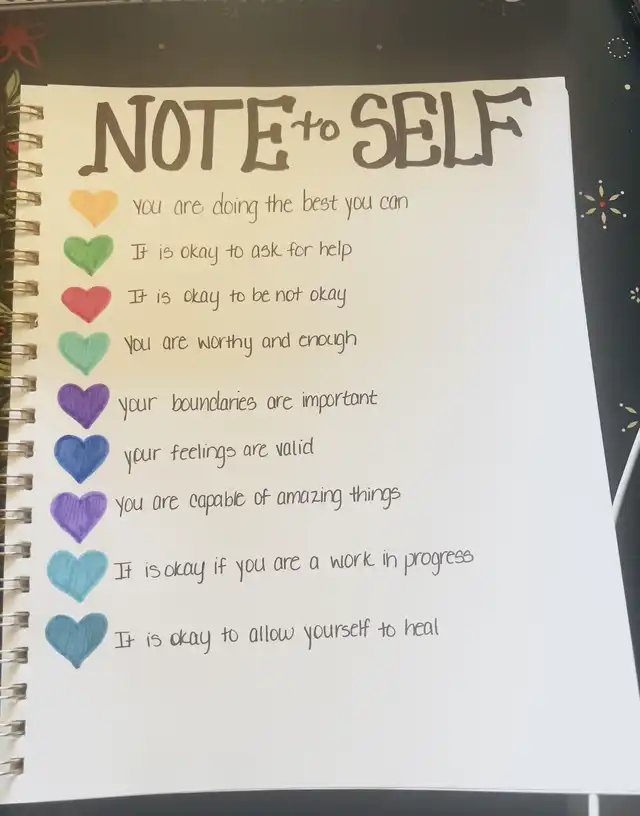 NOTE to SELF
You are doing the best you can
It is okay to ask for help
It is okay to be not okay
You are worthy and enough
your boundaries are important
your feelings are valid
You are capable of amazing things
It is okay if you are a work in progress
It is okay to allow yourself to heal